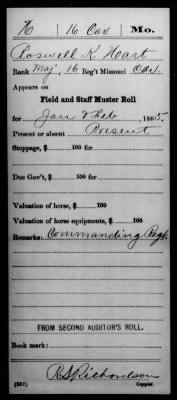 H | 16 Cav | Mo.
Roswell K. Hart
Rank Maj, 16 Reg't Missouri Cav.
Appears on
Field and Staff Muster Roll
for Jan & Feb, 1865.
Present or absent Present
Stoppage, $ 100 for
Due Gov't, $ 100 for
Valuation of horse, $ 100
Valuation of horse equipments, $ 100
Remarks: Commanding Regt.
FROM SECOND AUDITOR'S ROLL.
Book mark:
R S Richardson
(357) Copyist.